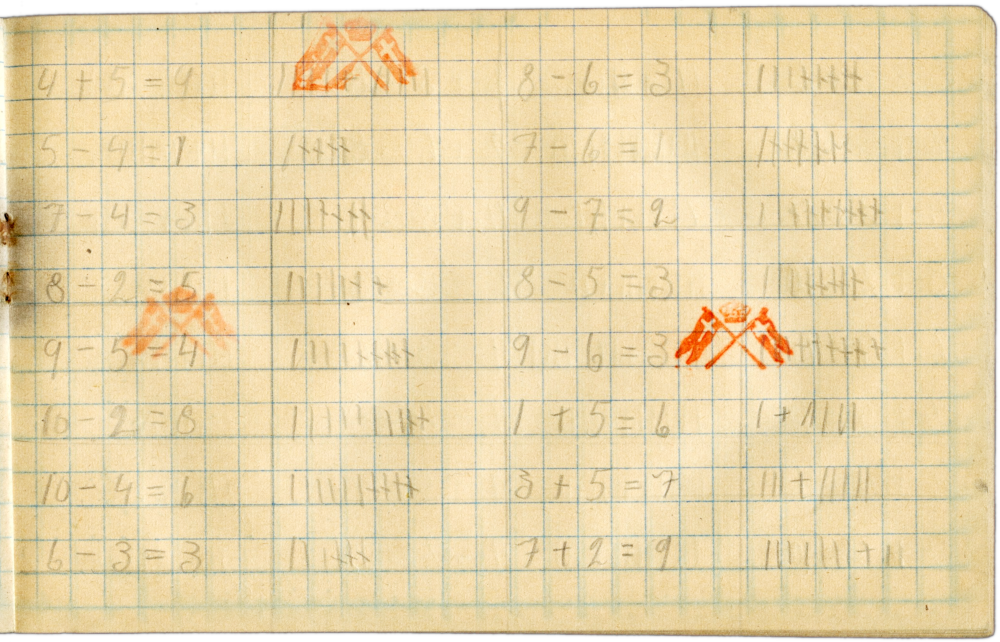 4 + 5 = 9
8 - 6 = 3
5 - 4 = 1
7 - 6 = 1
7 - 4 = 3
9 - 7 = 2
8 - 2 = 5
8 - 5 = 3
9 - 5 = 4
9 - 6 = 3
10 - 2 = 8
1 + 5 = 6
10 - 4 = 6
3 + 5 = 7
6 - 3 = 3
7 + 2 = 9